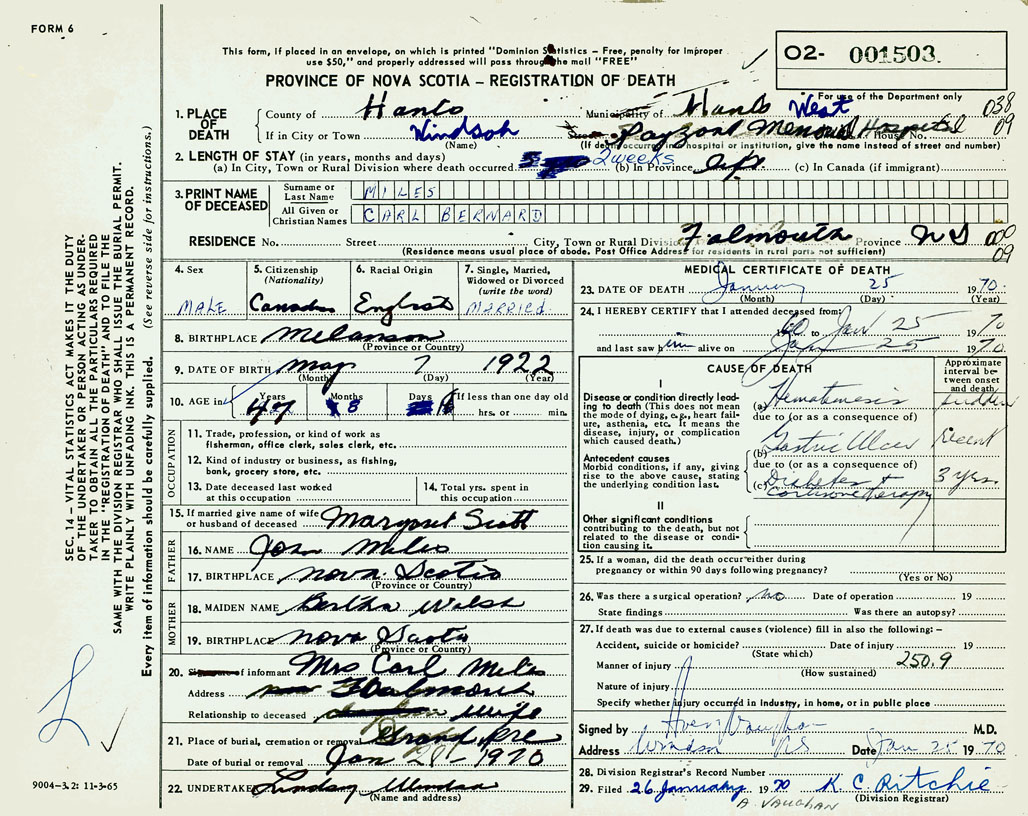 FORM 6
This form, if placed in an envelope, on which is printed "Dominion Statistics – Free, penalty for improper
use $50," and properly addressed will pass through the mail "FREE"
PROVINCE OF NOVA SCOTIA – REGISTRATION OF DEATH
O2- 001503
For use of the Department only
038
09
1. PLACE OF DEATH
County of Hants Municipality of Hants West
If in City or Town Windsor Payzant Memorial Hospital House No.
(Name) (If death occurred in hospital or institution, give the name instead of street and number)
2. LENGTH OF STAY (in years, months and days)
(a) In City, Town or Rural Division where death occurred 2 weeks (b) In Province life (c) In Canada (if immigrant)
3. PRINT NAME OF DECEASED
Surname or Last Name MILES
All Given or Christian Names CARL BERNARD
RESIDENCE No. Street City, Town or Rural Division Falmouth Province NS
000
09
(Residence means usual place of abode. Post Office Address for residents in rural parts not sufficient)
4. Sex MALE
5. Citizenship (Nationality) Canadian
6. Racial Origin English
7. Single, Married, Widowed or Divorced (write the word) MARRIED
8. BIRTHPLACE Melanson
(Province or Country)
9. DATE OF BIRTH May 7 1922
(Month) (Day) (Year)
10. AGE in Years 47 Months 8 Days If less than one day old hrs. or min.
OCCUPATION
11. Trade, profession, or kind of work as
fisherman, office clerk, sales clerk, etc.
12. Kind of industry or business, as fishing,
bank, grocery store, etc.
13. Date deceased last worked
at this occupation
14. Total yrs. spent in
this occupation
15. If married give name of wife
or husband of deceased Margaret Scott
FATHER
16. NAME John Miles
17. BIRTHPLACE Nova Scotia
(Province or Country)
MOTHER
18. MAIDEN NAME Bertha Walsh
19. BIRTHPLACE Nova Scotia
(Province or Country)
20. Signature of informant Mrs Carl Miles
Address Falmouth
Relationship to deceased Wife
21. Place of burial, cremation or removal Grand Pre
Date of burial or removal Jan 28 - 1970
22. UNDERTAKER Lindsay Windsor
(Name and address)
MEDICAL CERTIFICATE OF DEATH
23. DATE OF DEATH January 25 1970
(Month) (Day) (Year)
24. I HEREBY CERTIFY that I attended deceased from
60 to Jan 25 1970
and last saw him alive on Jan 25 1970
CAUSE OF DEATH
Approximate interval between onset and death
I
Disease or condition directly leading to death (This does not mean the mode of dying, e.g., heart failure, asthenia, etc. It means the disease, injury, or complication which caused death.)
(a) Hematemesis sudden
due to (or as a consequence of)
Antecedent causes
Morbid conditions, if any, giving rise to the above cause, stating the underlying condition last.
(b) Gastric Ulcer recent
due to (or as a consequence of)
(c) Diabetes + Cortisone therapy 3 yrs.
II
Other significant conditions
contributing to the death, but not related to the disease or condition causing it.
25. If a woman, did the death occur either during
pregnancy or within 90 days following pregnancy?
(Yes or No)
26. Was there a surgical operation? no Date of operation 19
State findings Was there an autopsy?
27. If death was due to external causes (violence) fill in also the following: –
Accident, suicide or homicide? Date of injury 19
(State which)
Manner of injury 250.9
(How sustained)
Nature of injury
Specify whether injury occurred in industry, in home, or in public place
Signed by Vaughan M.D.
Address Windsor NS Date Jan 25 1970
28. Division Registrar's Record Number
29. Filed 26 January 1970 K. C. Ritchie
A. VAUGHAN (Division Registrar)
SEC. 14 – VITAL STATISTICS ACT MAKES IT THE DUTY
OF THE UNDERTAKER OR PERSON ACTING AS UNDER-
TAKER TO OBTAIN ALL THE PARTICULARS REQUIRED
IN THE "REGISTRATION OF DEATH" AND TO FILE THE
SAME WITH THE DIVISION REGISTRAR WHO SHALL ISSUE THE BURIAL PERMIT.
WRITE PLAINLY WITH UNFADING INK. THIS IS A PERMANENT RECORD.
Every item of information should be carefully supplied. (See reverse side for instructions.)
9004-3.2: 11-3-65